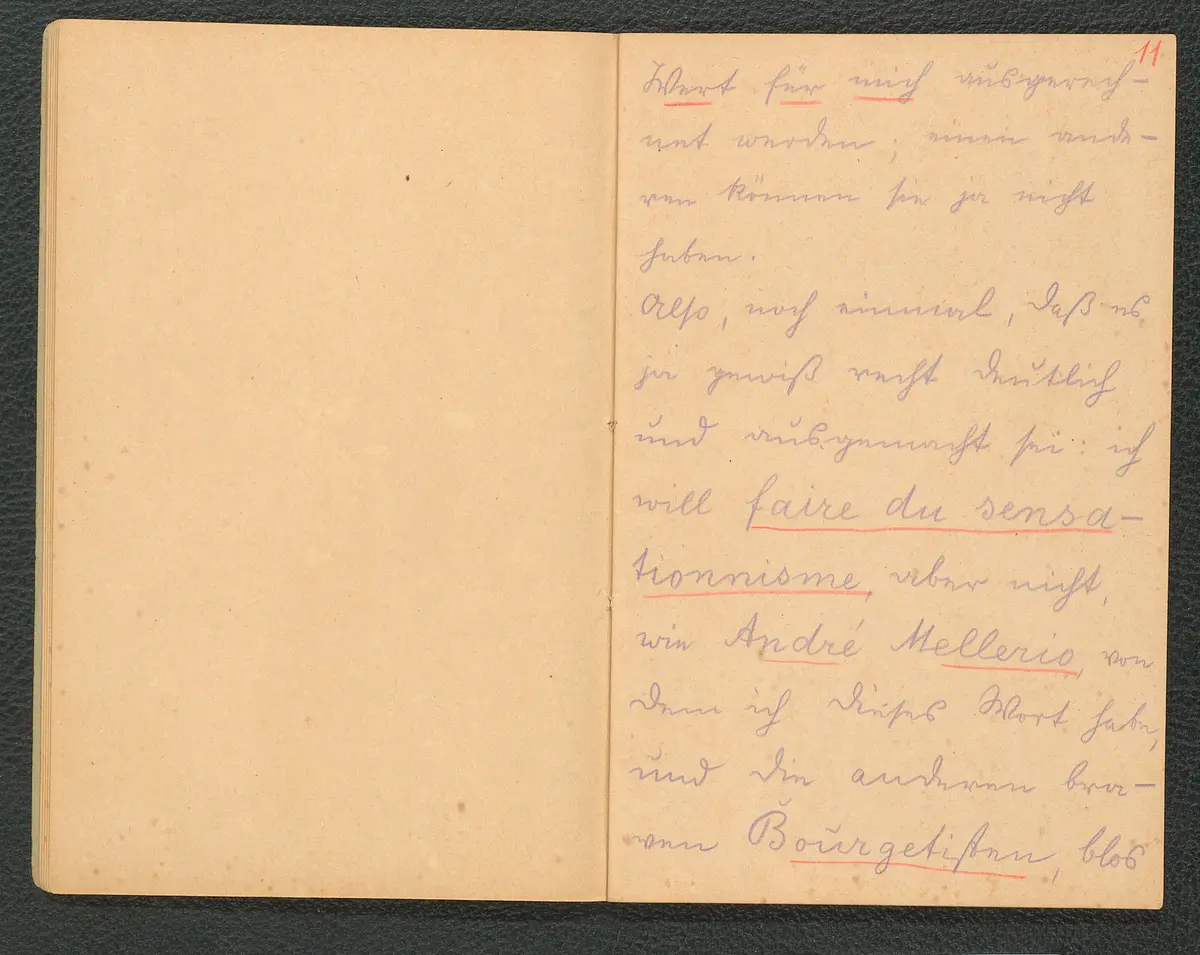 11
Wert für mich ausgerech-
net werden; einen ande-
ren können sie ja nicht
haben.
Also, noch einmal, daß es
ja gewiß recht deutlich
und ausgemacht sei: ich
will faire du sensa-
tionnisme, aber nicht,
wie André Mellerio, von
dem ich dieses Wort habe,
und die anderen bra-
ven Bourgetisten, blos